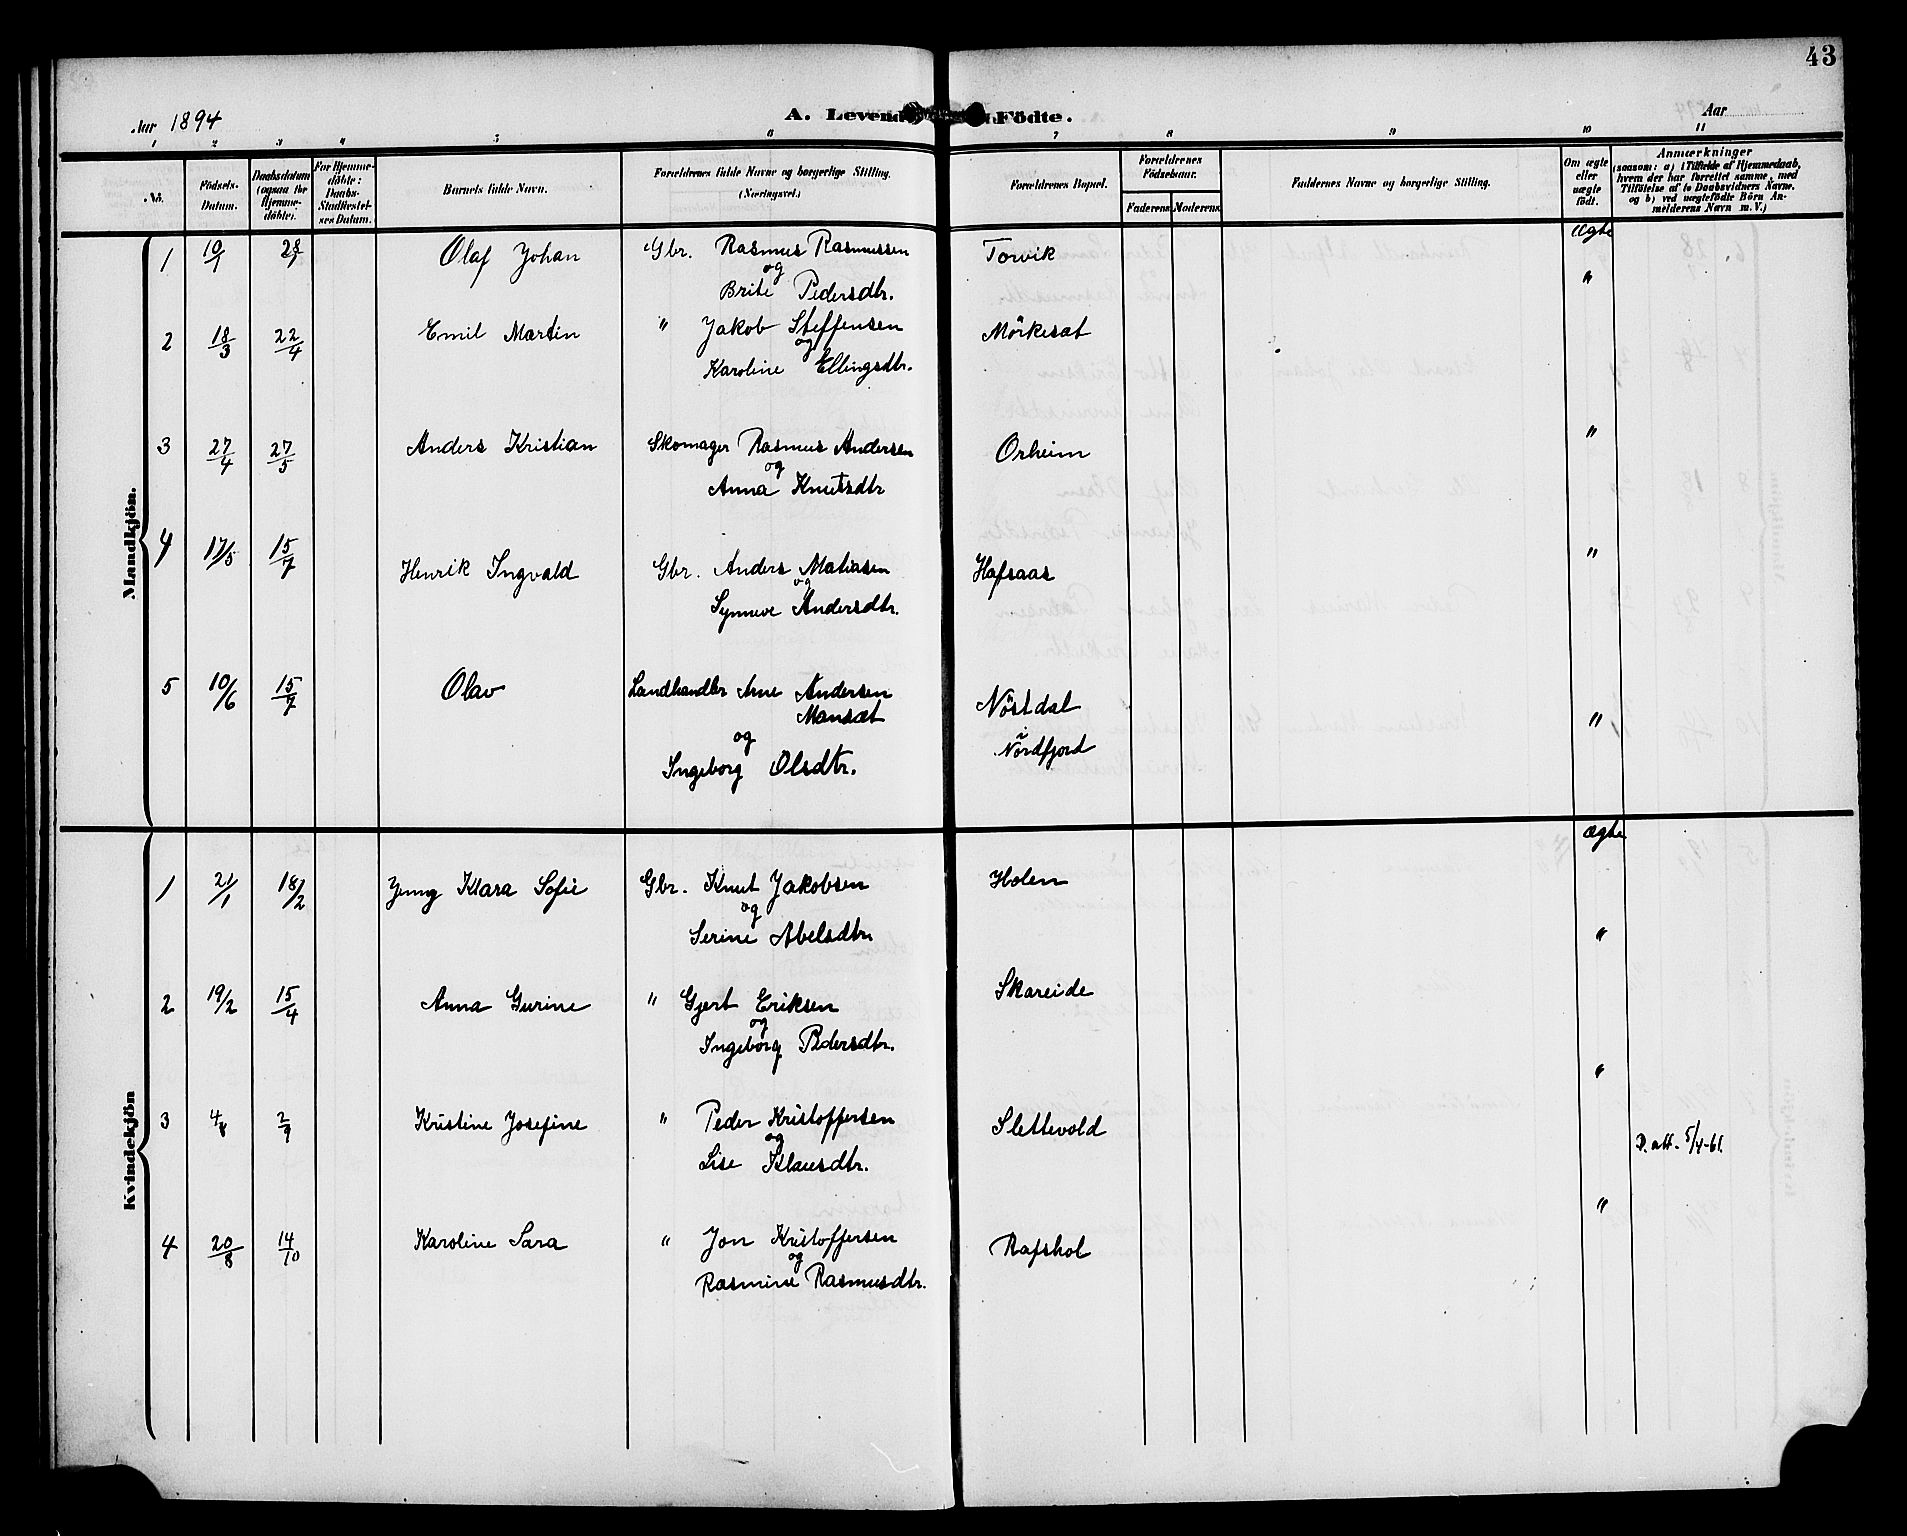 43
Aar 1894
A. Levende Födte.
Aar
1 2 3 4 5 6 7 8 9 10 11
No.
Födsels-
Datum.
Daabsdatum
(ogsaa for
Hjemme-
döbte).
For Hjemme-
döbte:
Daabs-
Stadfæstel-
ses Datum.
Barnets fulde Navn.
Forældrenes fulde Navne og borgerlige Stilling.
(Næringsvei.)
Forældrenes Bopæl.
Forældrenes
Födselsaar.
Faderens
Moderens
Faddernes Navne og borgerlige Stilling.
Om ægte
eller
uægte
födt.
Anmærkninger
(saasom: a) i Tilfælde af Hjemmedaab,
hvem der har forrettet samme, med
Tilföielse af to Daabsvidners Navne.
og b) ved uægtefödte Börn An-
melderens Navn m. V.)
Mandkjön.
Ægte
1 19/1 Olaf Johan Gbr. Rasmus Rasmussen Torvik "
og
Brite Pedersdtr.
2 18/3 22/4 Emil Martin " Jakob Steffensen Mörkesæt
og
Karoline Ellingsdtr.
3 27/4 27/5 Anders Kristian Skomager Rasmus Andersen Orheim "
og
Anna Knutsdtr
4 17/5 15/7 Henrik Ingvald Gbr. Anders Matiasen Hafsaas "
og
Synneve Andersdtr.
5 10/6 15/7 Olav Landhandler Arne Andersen Nöstdal "
Mansæt i
og Nordfjord
Ingeborg Olsdtr.
Kvindekjön
Ægte
1 21/1 18/2 Jenny Klara Sofie Gbr. Knut Jakobsen Holen
og
Serine Abelsdtr "
2 19/2 15/4 Anna Gurine " Gjert Eriksen Skareide
og
Ingeborg Pedersdtr. "
3 4/8 2/9 Kristine Josefine " Peder Kristoffersen Slettevold
og
Lise Klausdtr. D. att. 5/4-61.
4 20/8 14/10 Karoline Sara " Jon Kristoffersen Rafshol "
og
Rasmine Rasmusdtr.